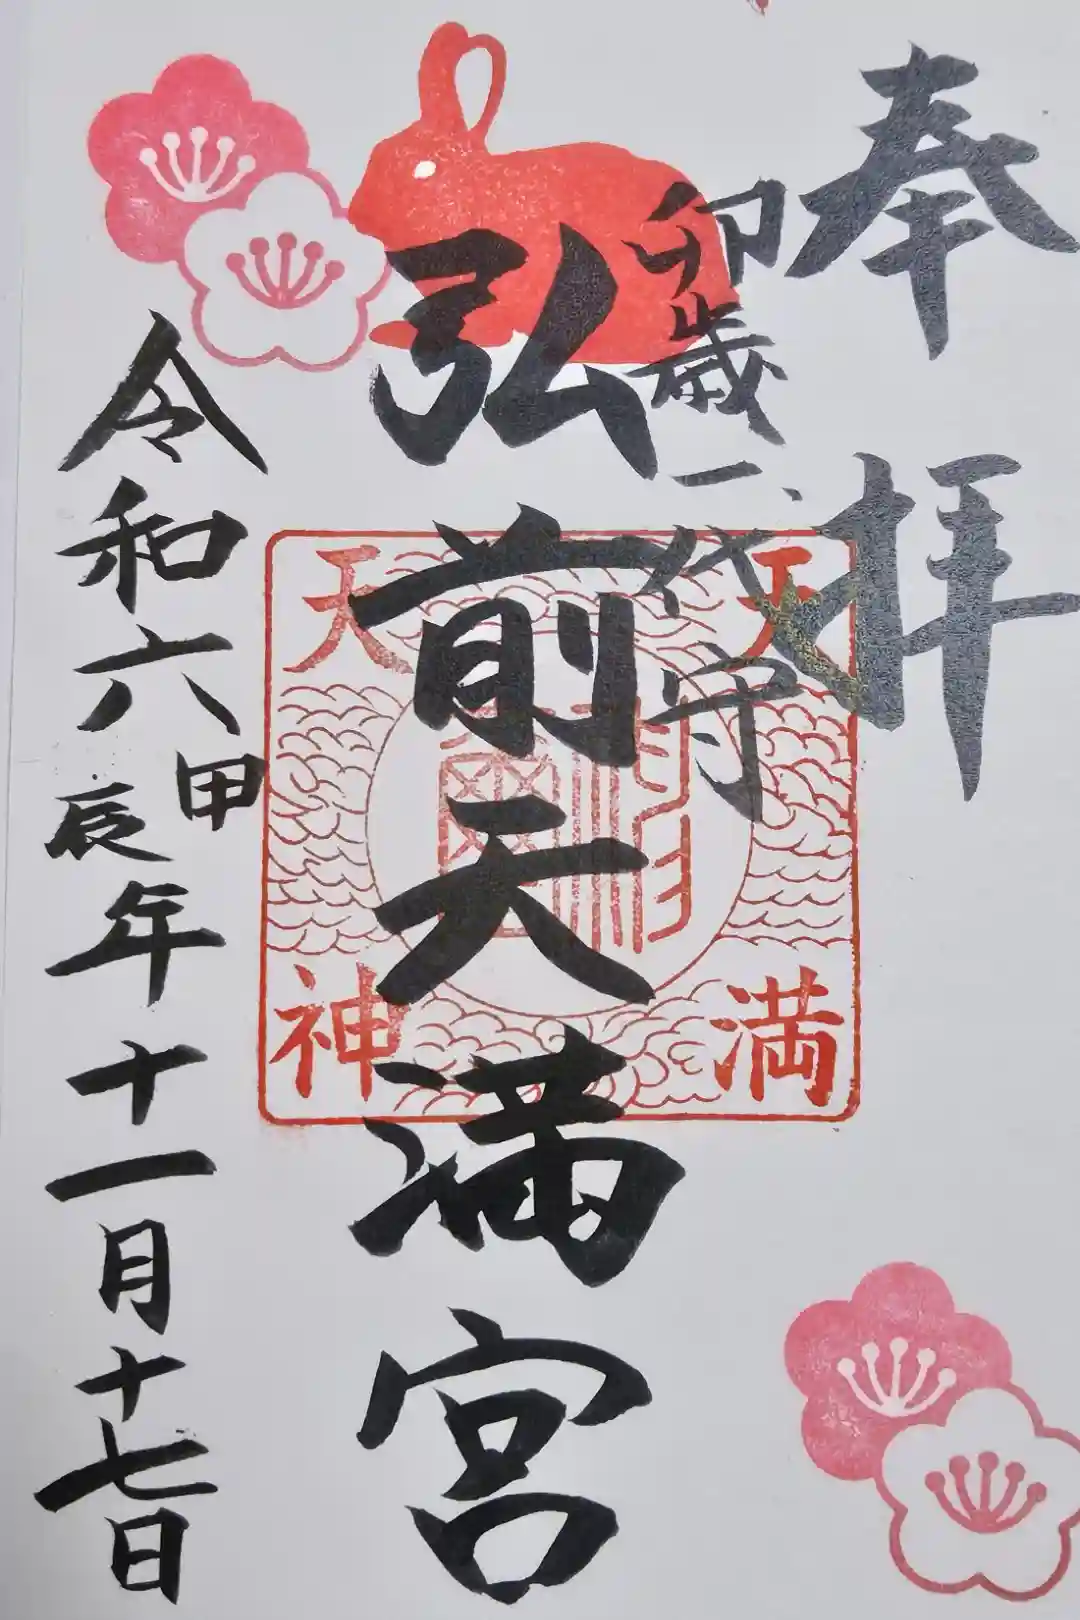 奉拝
卯歳一代守
弘前天満宮
天満天神
令和六甲辰年十一月十七日